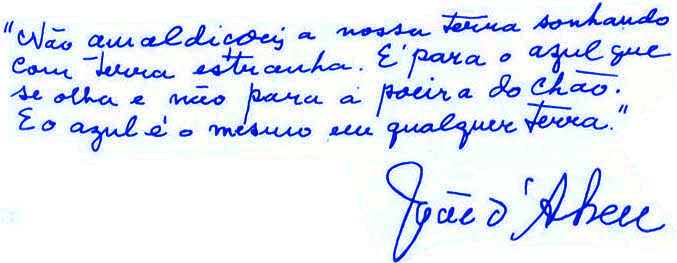 "Não amaldiçoeis a nossa terra sonhando
com terra estranha. É para o azul que
se olha e não para a poeira do chão.
E o azul é o mesmo em qualquer terra."
João d'Abreu